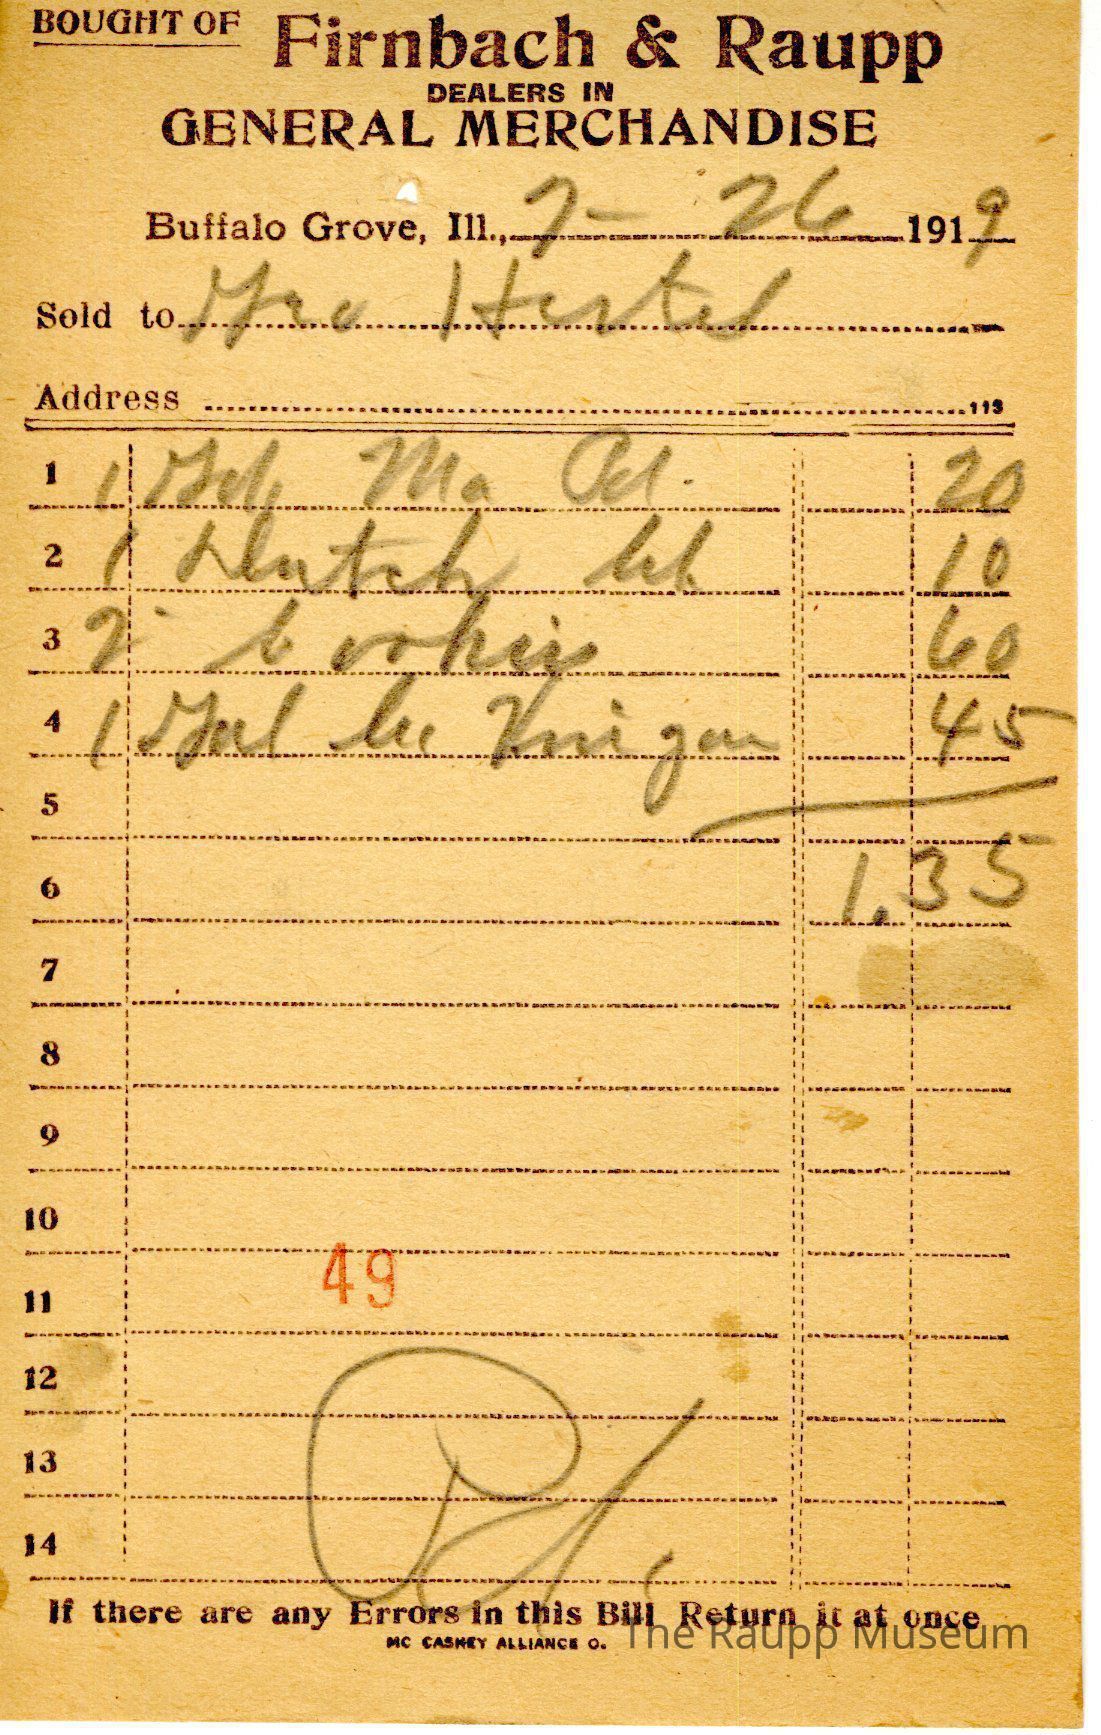 BOUGHT OF Firnbach & Raupp
DEALERS IN
GENERAL MERCHANDISE
Buffalo Grove, Ill., 7-26 1919
Sold to Geo Hertel
Address 113
1 1 Gal Ma Oil. 20
2 1 Dutch 10
3 2 Cookies 60
4 1 Gal Vinigar 45
5
6 1.35
7
8
9
10
49
11
12
13
14
Pd.
If there are any Errors in this Bill Return it at once
MC CASKEY ALLIANCE O.
The Raupp Museum